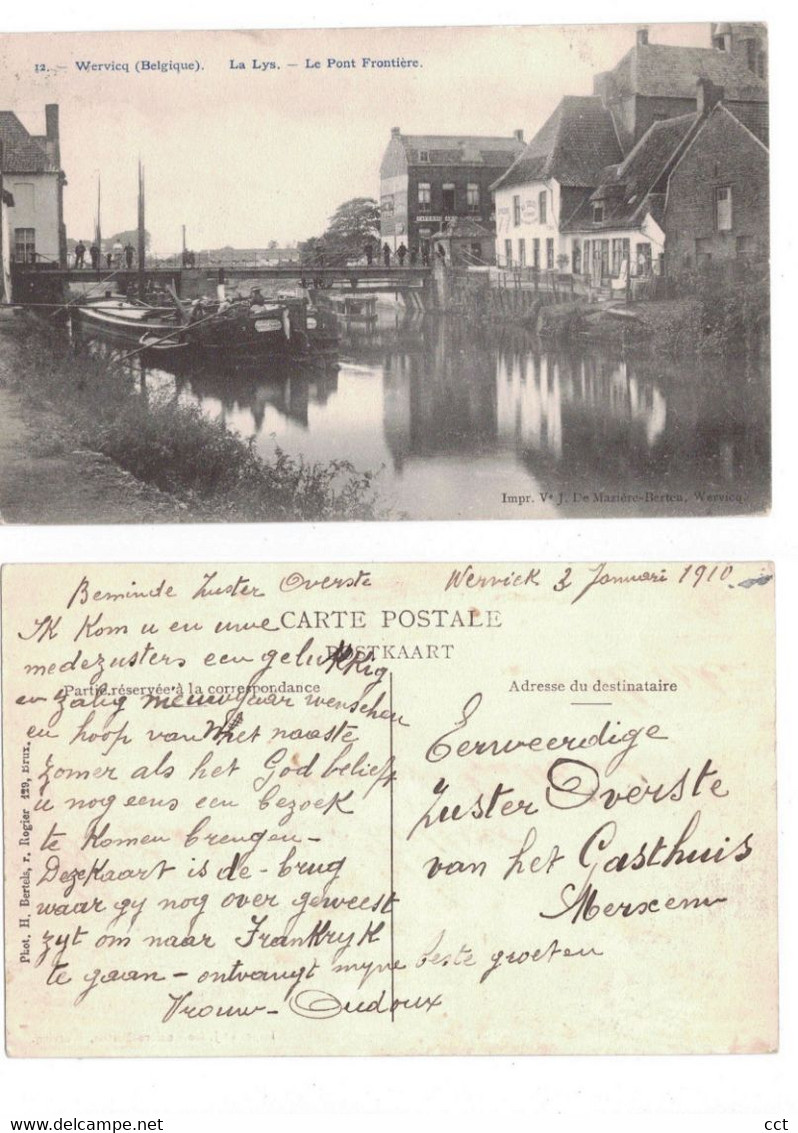 12. — Wervicq (Belgique). La Lys. — Le Pont Frontière.
Impr. Ve J. De Mazière-Berteu, Wervicq.
Beminde Zuster Overste
Wervick 3 Januari 1910
CARTE POSTALE
POSTKAART
Partie réservée à la correspondance
Adresse du destinataire
Ik kom u en uwe
medezusters een gelukkig
en zalig nieuwjaar wenschen
en hoop van het naaste
zomer als het God belieft
u nog eens een bezoek
te komen brengen –
Deze Kaart is de brug
waar gy nog over geweest
zyt om naar Frankryk
te gaan – ontvangt myne beste groeten
Vrouw Oudoux
Eerweerdige
Zuster Overste
van het Gasthuis
Merxem
Phot. H. Bertels, r. Rogier 129, Brux.
cct